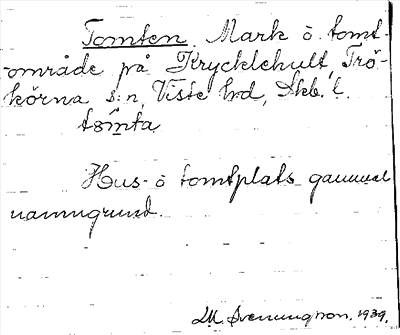 Tomten. Mark o. tomt-
område på Krycklehult, Trö-
körna s:n, Viste hd, Skb. l.
tomta
Hus- o tomtplats gammal
namngrund.
Svenungson. 1939.